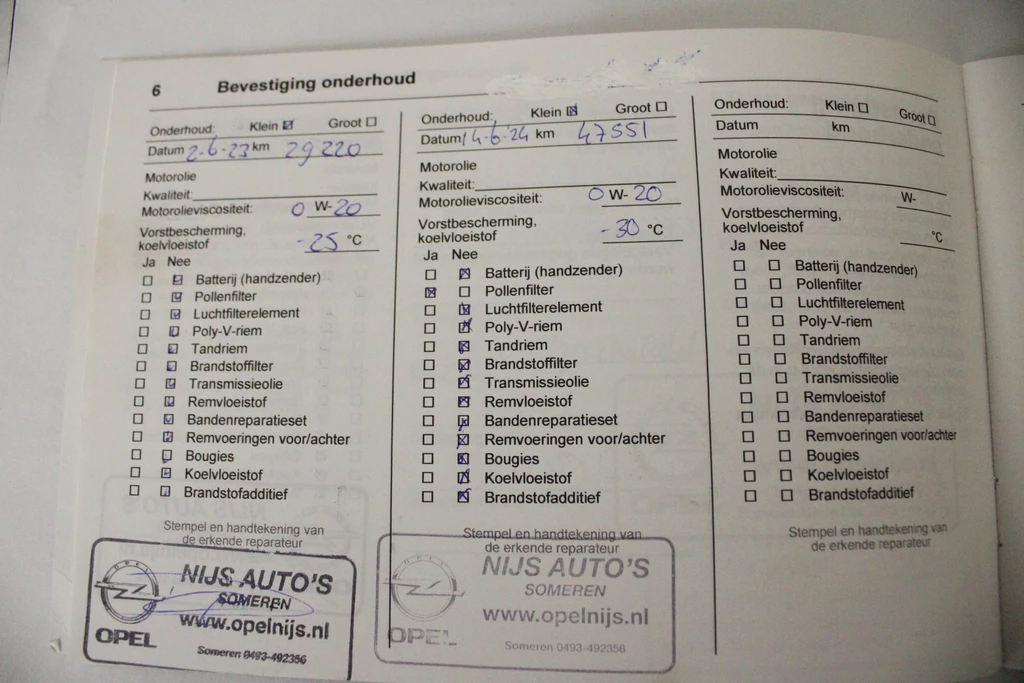 6 Bevestiging onderhoud
Onderhoud: Klein ☒ Groot ☐
Datum 2-6-23 km 29220
Motorolie
Kwaliteit:
Motorolieviscositeit: 0 W-20
Vorstbescherming,
koelvloeistof -25 °C
Ja Nee
☐ ☒ Batterij (handzender)
☐ ☒ Pollenfilter
☐ ☒ Luchtfilterelement
☐ ☒ Poly-V-riem
☐ ☒ Tandriem
☐ ☒ Brandstoffilter
☐ ☒ Transmissieolie
☐ ☒ Remvloeistof
☐ ☒ Bandenreparatieset
☐ ☒ Remvoeringen voor/achter
☐ ☒ Bougies
☐ ☒ Koelvloeistof
☐ ☒ Brandstofadditief
Stempel en handtekening van
de erkende reparateur
NIJS AUTO'S
SOMEREN
www.opelnijs.nl
OPEL
Someren 0493-492356
Onderhoud: Klein ☒ Groot ☐
Datum 14-6-24 km 47551
Motorolie
Kwaliteit:
Motorolieviscositeit: 0 W-20
Vorstbescherming,
koelvloeistof -30 °C
Ja Nee
☐ ☒ Batterij (handzender)
☒ ☐ Pollenfilter
☐ ☒ Luchtfilterelement
☐ ☒ Poly-V-riem
☐ ☒ Tandriem
☐ ☒ Brandstoffilter
☐ ☒ Transmissieolie
☐ ☒ Remvloeistof
☐ ☒ Bandenreparatieset
☐ ☒ Remvoeringen voor/achter
☐ ☒ Bougies
☐ ☒ Koelvloeistof
☐ ☒ Brandstofadditief
Stempel en handtekening van
de erkende reparateur
NIJS AUTO'S
SOMEREN
www.opelnijs.nl
OPEL
Someren 0493-492356
Onderhoud: Klein ☐ Groot ☐
Datum km
Motorolie
Kwaliteit:
Motorolieviscositeit: W-
Vorstbescherming,
koelvloeistof °C
Ja Nee
☐ ☐ Batterij (handzender)
☐ ☐ Pollenfilter
☐ ☐ Luchtfilterelement
☐ ☐ Poly-V-riem
☐ ☐ Tandriem
☐ ☐ Brandstoffilter
☐ ☐ Transmissieolie
☐ ☐ Remvloeistof
☐ ☐ Bandenreparatieset
☐ ☐ Remvoeringen voor/achter
☐ ☐ Bougies
☐ ☐ Koelvloeistof
☐ ☐ Brandstofadditief
Stempel en handtekening van
de erkende reparateur